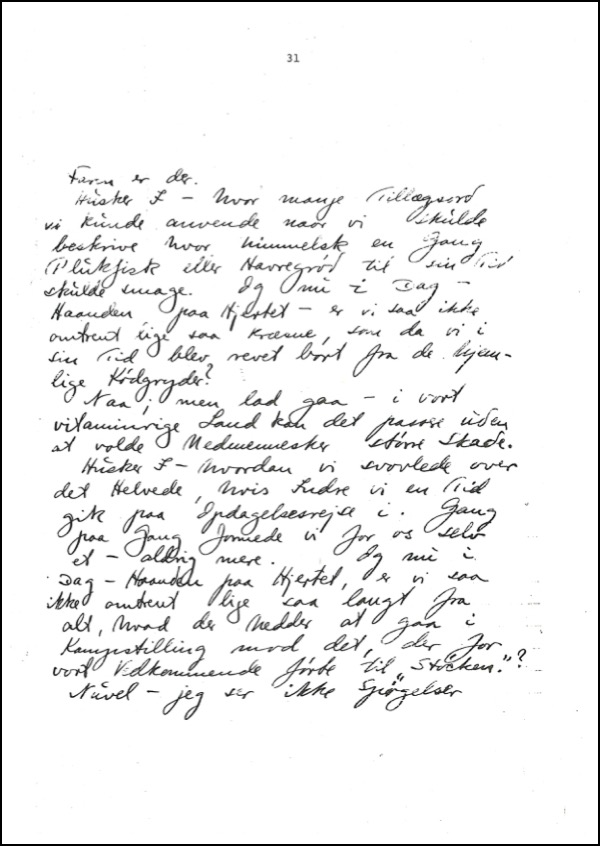 31
Faren er der.
Husker I – hvor mange Tillægsord
vi kunde anvende naar vi skulde
beskrive hvor himmelsk en Gang
Plukfisk eller Havregrød til sin Tid
skulde smage. Og nu i Dag –
Haanden paa Hjertet – er vi saa ikke
omtrent lige saa kræsne, som da vi i
sin Tid blev revet bort fra de hjem-
lige Kødgryder?
Naa, men lad gaa – i vort
vitaminrige Land kan det passere uden
at volde Medmennesker større Skade.
Husker I – hvordan vi svovlede over
det Helvede, hvis Indre vi en Tid
gik paa Opdagelsesrejse i. Gang
paa Gang formede vi for os selv
et – aldrig mere. Og nu i
Dag – Haanden paa Hjertet, er vi saa
ikke omtrent lige saa langt fra
alt, hvad der hedder at gaa i
Kampstilling mod det, der for
vort Vedkommende førte til „Stöcken."?
Nuvel – jeg ser ikke